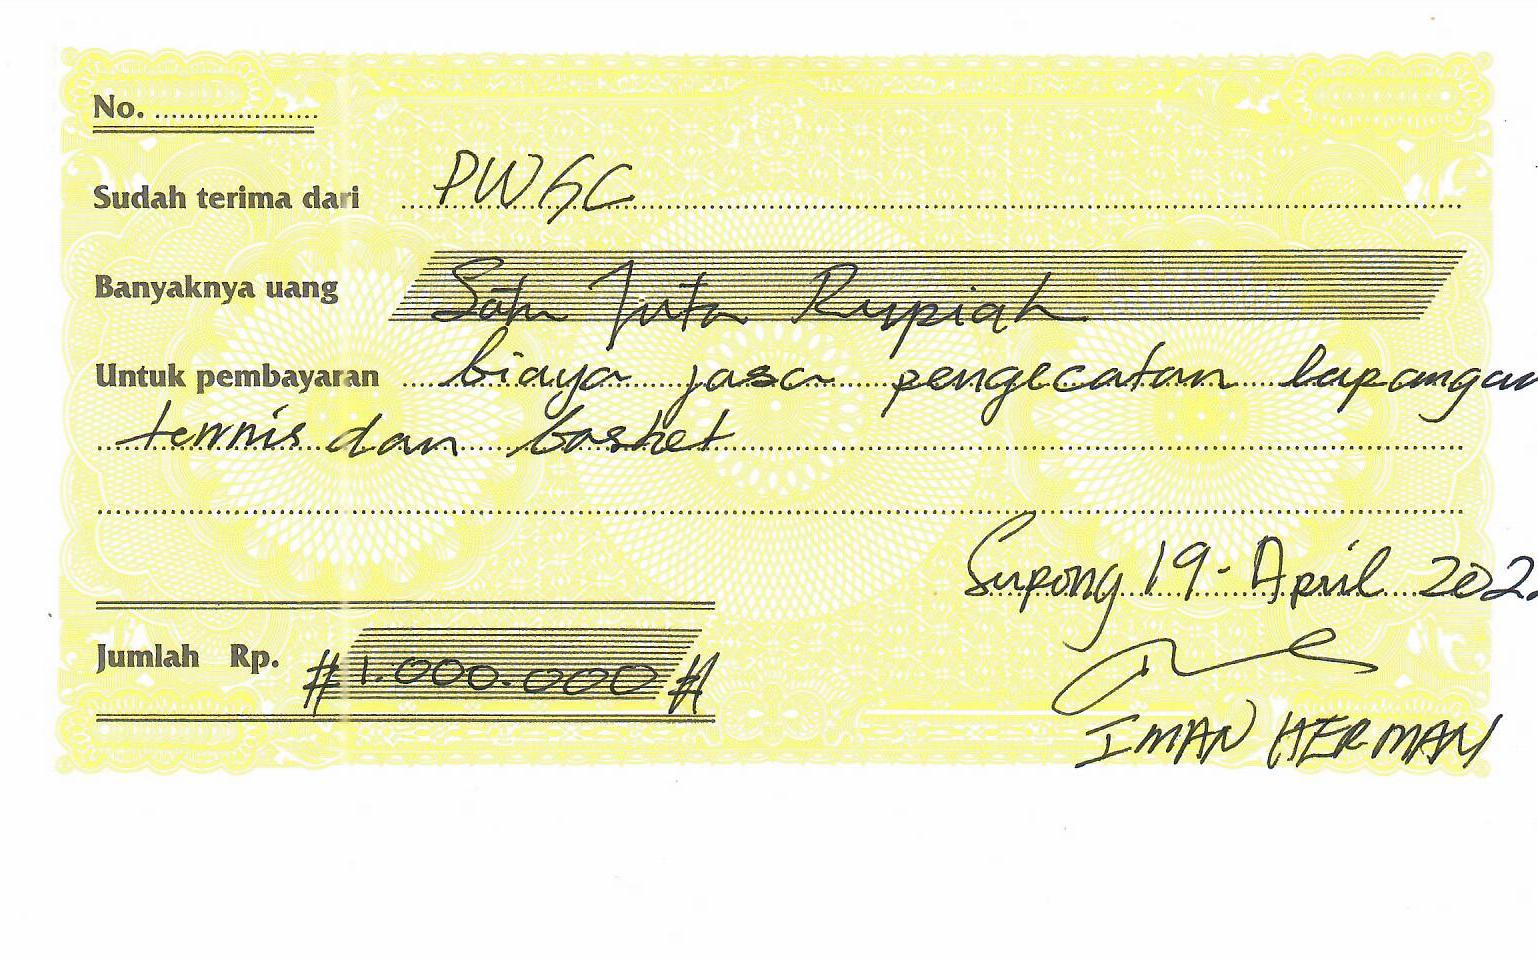 No. ....................
Sudah terima dari PWGC
Banyaknya uang Satu Juta Rupiah
Untuk pembayaran biaya jasa pengecatan lapangan
tennis dan basket
Serpong 19 - April 2022
Jumlah Rp. # 1.000.000 #
IMAN HERMAN